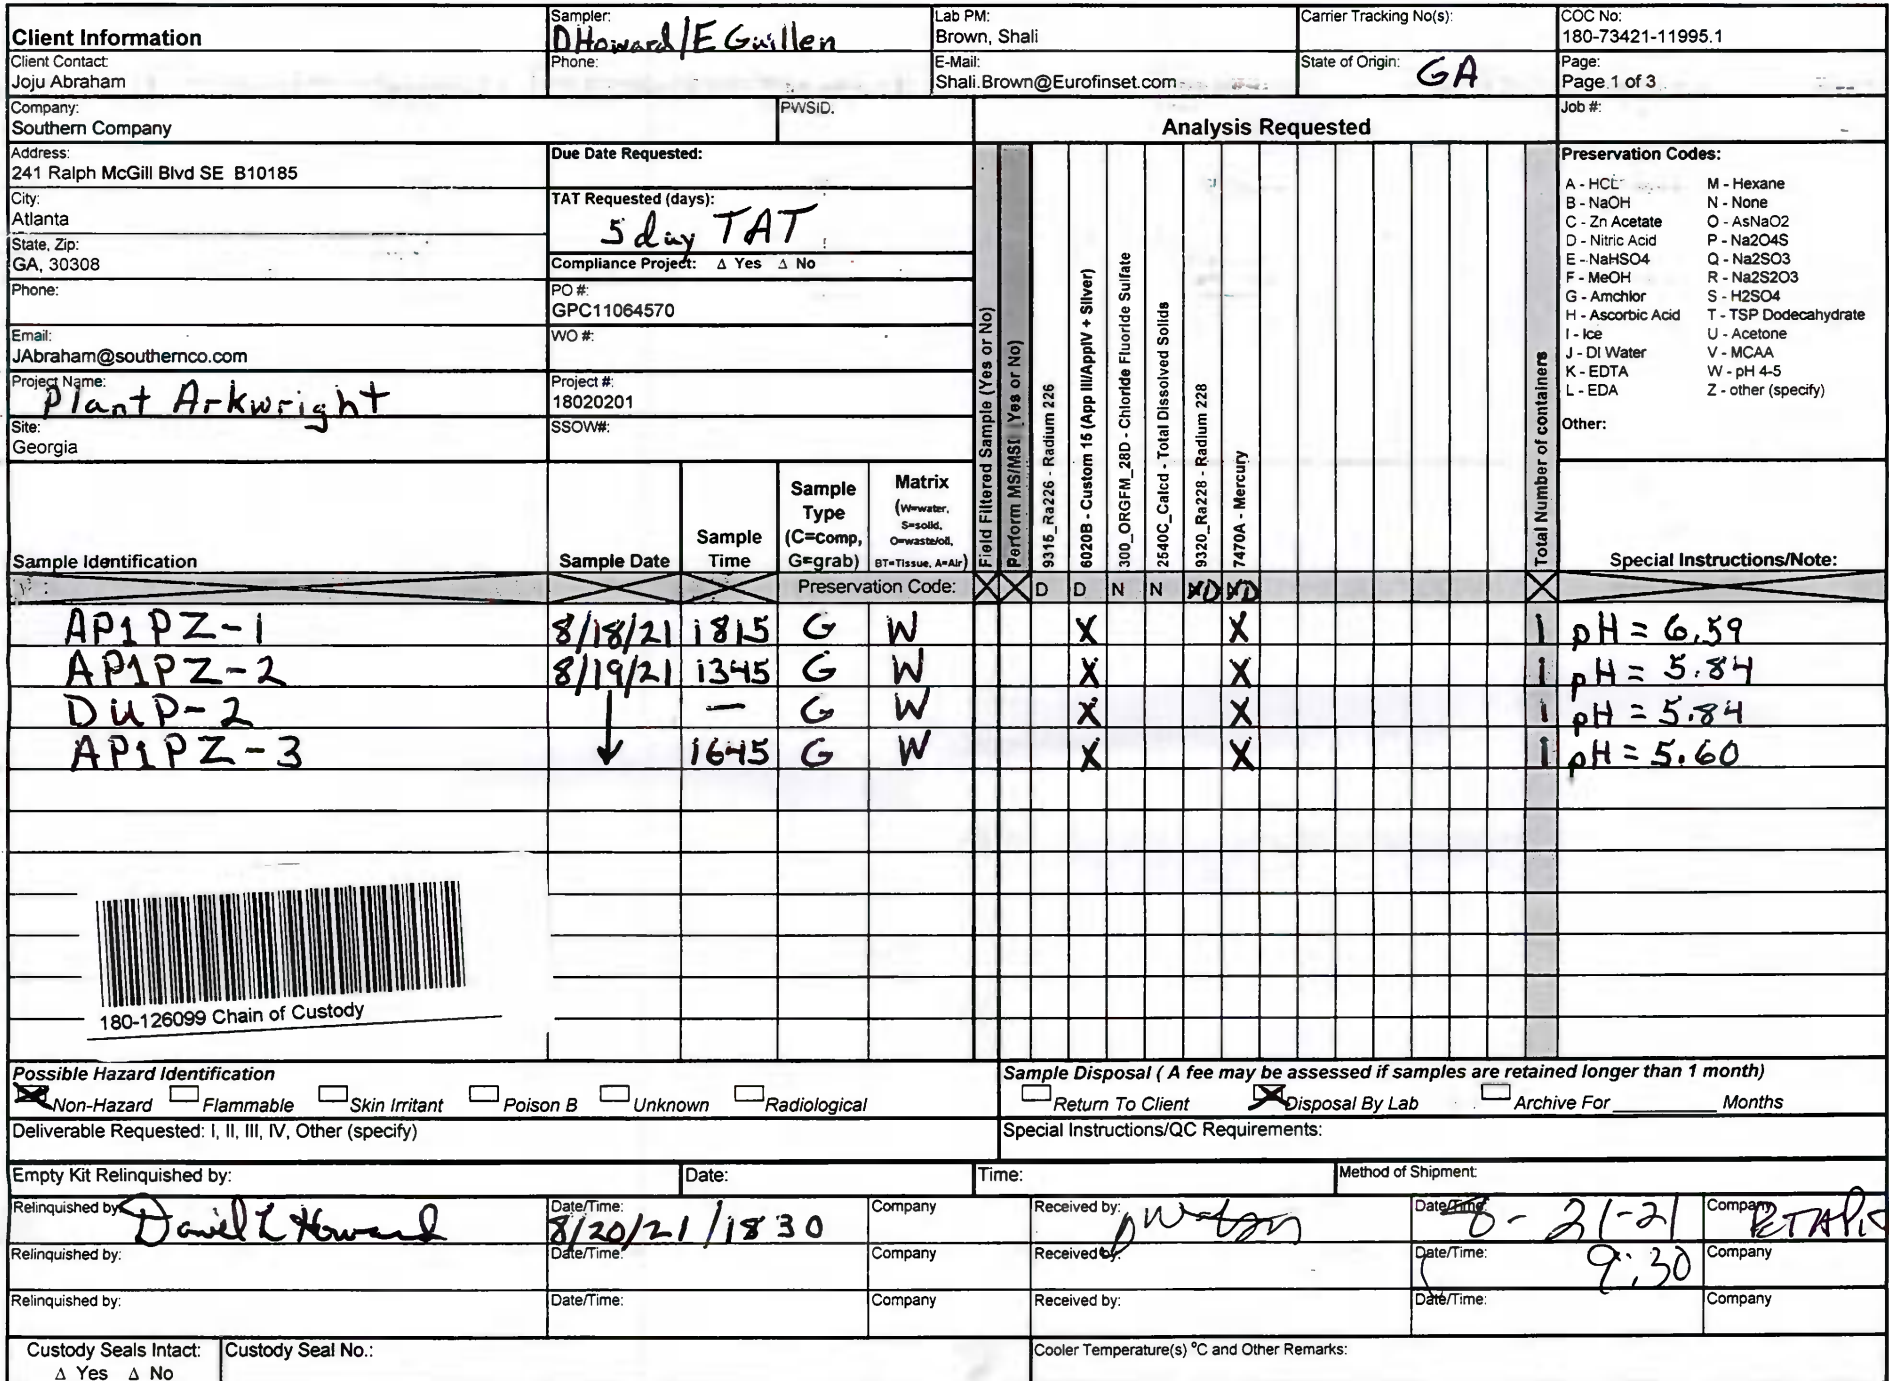 Client Information
Sampler:
D Howard / E Guillen
Lab PM:
Brown, Shali
Carrier Tracking No(s):
COC No:
180-73421-11995.1
Client Contact:
Joju Abraham
Phone:
E-Mail:
Shali.Brown@Eurofinset.com
State of Origin: GA
Page:
Page 1 of 3
Company:
Southern Company
PWSID.
Analysis Requested
Job #:
Address:
241 Ralph McGill Blvd SE B10185
Due Date Requested:
City:
Atlanta
TAT Requested (days):
5 day TAT
State, Zip:
GA, 30308
Compliance Project: Δ Yes Δ No
Phone:
PO #:
GPC11064570
Email:
JAbraham@southernco.com
WO #:
Project Name:
Plant Arkwright
Project #:
18020201
Site:
Georgia
SSOW#:
Preservation Codes:
A - HCL M - Hexane
B - NaOH N - None
C - Zn Acetate O - AsNaO2
D - Nitric Acid P - Na2O4S
E - NaHSO4 Q - Na2SO3
F - MeOH R - Na2S2O3
G - Amchlor S - H2SO4
H - Ascorbic Acid T - TSP Dodecahydrate
I - Ice U - Acetone
J - DI Water V - MCAA
K - EDTA W - pH 4-5
L - EDA Z - other (specify)
Other:
Sample Identification
Sample Date
Sample Time
Sample Type (C=comp, G=grab)
Matrix (W=water, S=solid, O=waste/oil, BT=Tissue, A=Air)
Field Filtered Sample (Yes or No)
Perform MS/MSD (Yes or No)
9315_Ra226 - Radium 226
6020B - Custom 15 (App III/AppIV + Silver)
300_ORGFM_28D - Chloride Fluoride Sulfate
2540C_Calcd - Total Dissolved Solids
9320_Ra228 - Radium 228
7470A - Mercury
Total Number of containers
Special Instructions/Note:
Preservation Code: D D N N D D
AP1PZ-1 8/18/21 1815 G W X X 1 pH = 6.59
AP1PZ-2 8/19/21 1345 G W X X 1 pH = 5.84
DUP-2 ↓ — G W X X 1 pH = 5.84
AP1PZ-3 1645 G W X X 1 pH = 5.60
180-126099 Chain of Custody
Possible Hazard Identification
Non-Hazard Flammable Skin Irritant Poison B Unknown Radiological
Sample Disposal ( A fee may be assessed if samples are retained longer than 1 month)
Return To Client Disposal By Lab Archive For ______ Months
Deliverable Requested: I, II, III, IV, Other (specify)
Special Instructions/QC Requirements:
Empty Kit Relinquished by:
Date:
Time:
Method of Shipment:
Relinquished by: Daniel L Howard
Date/Time: 8/20/21 / 1830
Company
Received by: D Watson
Date/Time: 8-21-21
Company
Relinquished by:
Date/Time:
Company
Received by:
Date/Time: 9:30
Company
Relinquished by:
Date/Time:
Company
Received by:
Date/Time:
Company
Custody Seals Intact:
Δ Yes Δ No
Custody Seal No.:
Cooler Temperature(s) °C and Other Remarks: